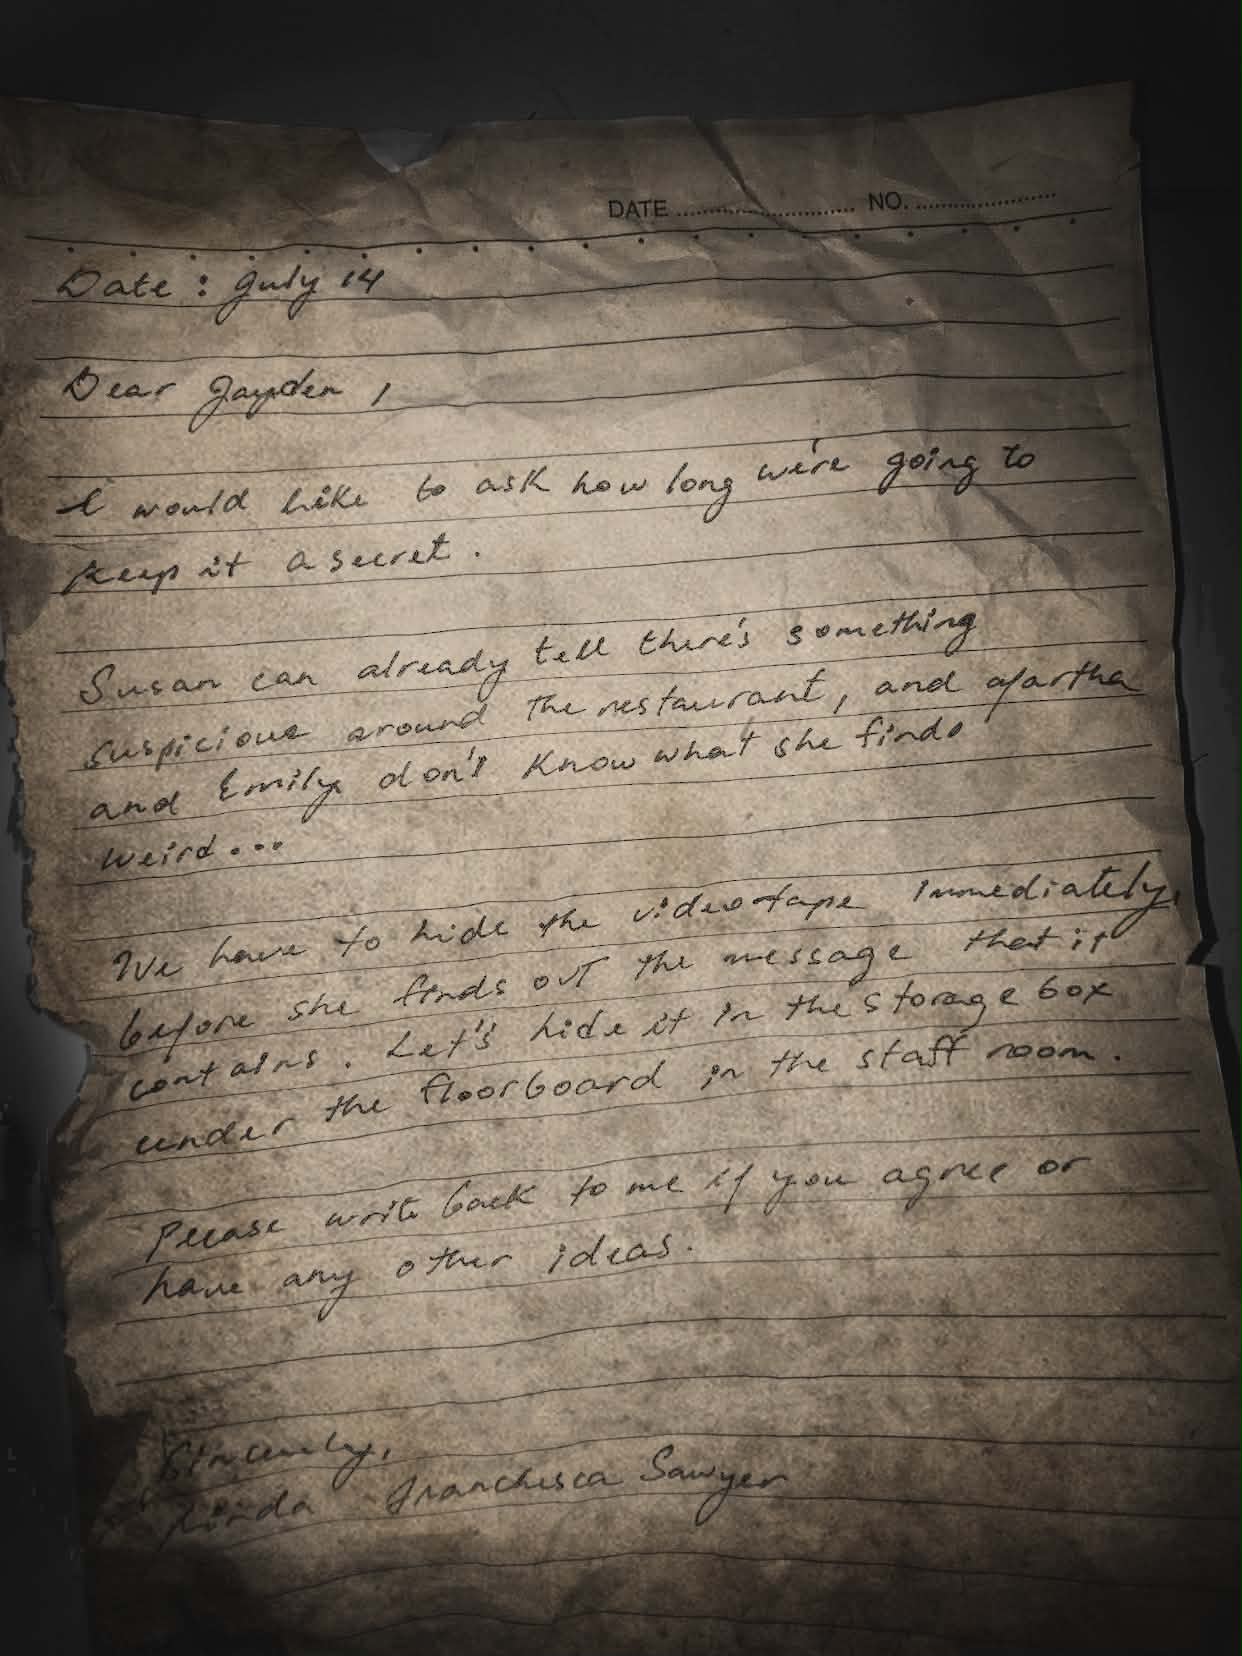 DATE ........................ NO. ........................
Date : July 14
Dear Jayden,
I would like to ask how long we're going to
keep it a secret.
Susan can already tell there's something
suspicious around the restaurant, and Martha
and Emily don't know what she finds
weird...
We have to hide the videotape immediately,
before she finds out the message that it
contains. Let's hide it in the storage box
under the floorboard in the staff room.
Please write back to me if you agree or
have any other ideas.
Sincerely,
Linda Franchesca Sawyer